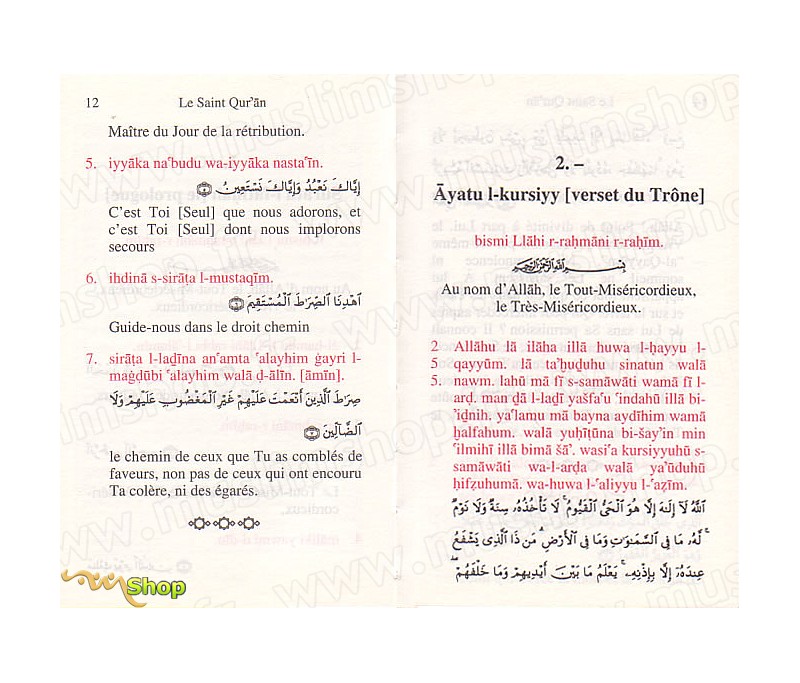 12 Le Saint Qur'ān
Maître du Jour de la rétribution.
5. iyyāka naʿbudu wa-iyyāka nastaʿīn.
إِيَّاكَ نَعْبُدُ وَإِيَّاكَ نَسْتَعِينُ ۝٥
C'est Toi [Seul] que nous adorons, et
c'est Toi [Seul] dont nous implorons
secours
6. ihdinā s-sirāṭa l-mustaqīm.
اَهْدِنَا الصِّرَاطَ الْمُسْتَقِيمَ ۝٦
Guide-nous dans le droit chemin
7. sirāṭa l-laḏīna anʿamta ʿalayhim ġayri l-
maġḍūbi ʿalayhim walā ḍ-ālīn. [āmīn].
صِرَاطَ الَّذِينَ أَنْعَمْتَ عَلَيْهِمْ غَيْرِ الْمَغْضُوبِ عَلَيْهِمْ وَلَا
الضَّالِّينَ ۝٧
le chemin de ceux que Tu as comblés de
faveurs, non pas de ceux qui ont encouru
Ta colère, ni des égarés.
2. –
Āyatu l-kursiyy [verset du Trône]
bismi Llāhi r-raḥmāni r-raḥīm.
بِسْمِ اللَّهِ الرَّحْمَنِ الرَّحِيمِ
Au nom d'Allāh, le Tout-Miséricordieux,
le Très-Miséricordieux.
2 Allāhu lā ilāha illā huwa l-ḥayyu l-
5 qayyūm. lā ta'ḫuḏuhu sinatun walā
5. nawm. lahū mā fī s-samāwāti wamā fī l-
arḍ. man ḏā l-laḏī yašfaʿu ʿindahū illā bi-
'iḏnih. yaʿlamu mā bayna aydīhim wamā
ḫalfahum. walā yuḥīṭūna bi-šay'in min
ʿilmihī illā bimā šā'. wasiʿa kursiyyuhū s-
samāwāti wa-l-arḍa walā ya'ūduhū
ḥifẓuhumā. wa-huwa l-ʿaliyyu l-ʿaẓīm.
اللَّهُ لَآ إِلَهَ إِلَّا هُوَ الْحَيُّ الْقَيُّومُ ۚ لَا تَأْخُذُهُ سِنَةٌ وَلَا نَوْمٌ ۚ
لَّهُ مَا فِي السَّمَاوَاتِ وَمَا فِي الْأَرْضِ ۗ مَن ذَا الَّذِي يَشْفَعُ
عِندَهُ إِلَّا بِإِذْنِهِ ۚ يَعْلَمُ مَا بَيْنَ أَيْدِيهِمْ وَمَا خَلْفَهُمْ ۖ
muslimshop
www.muslimshop.
Shop